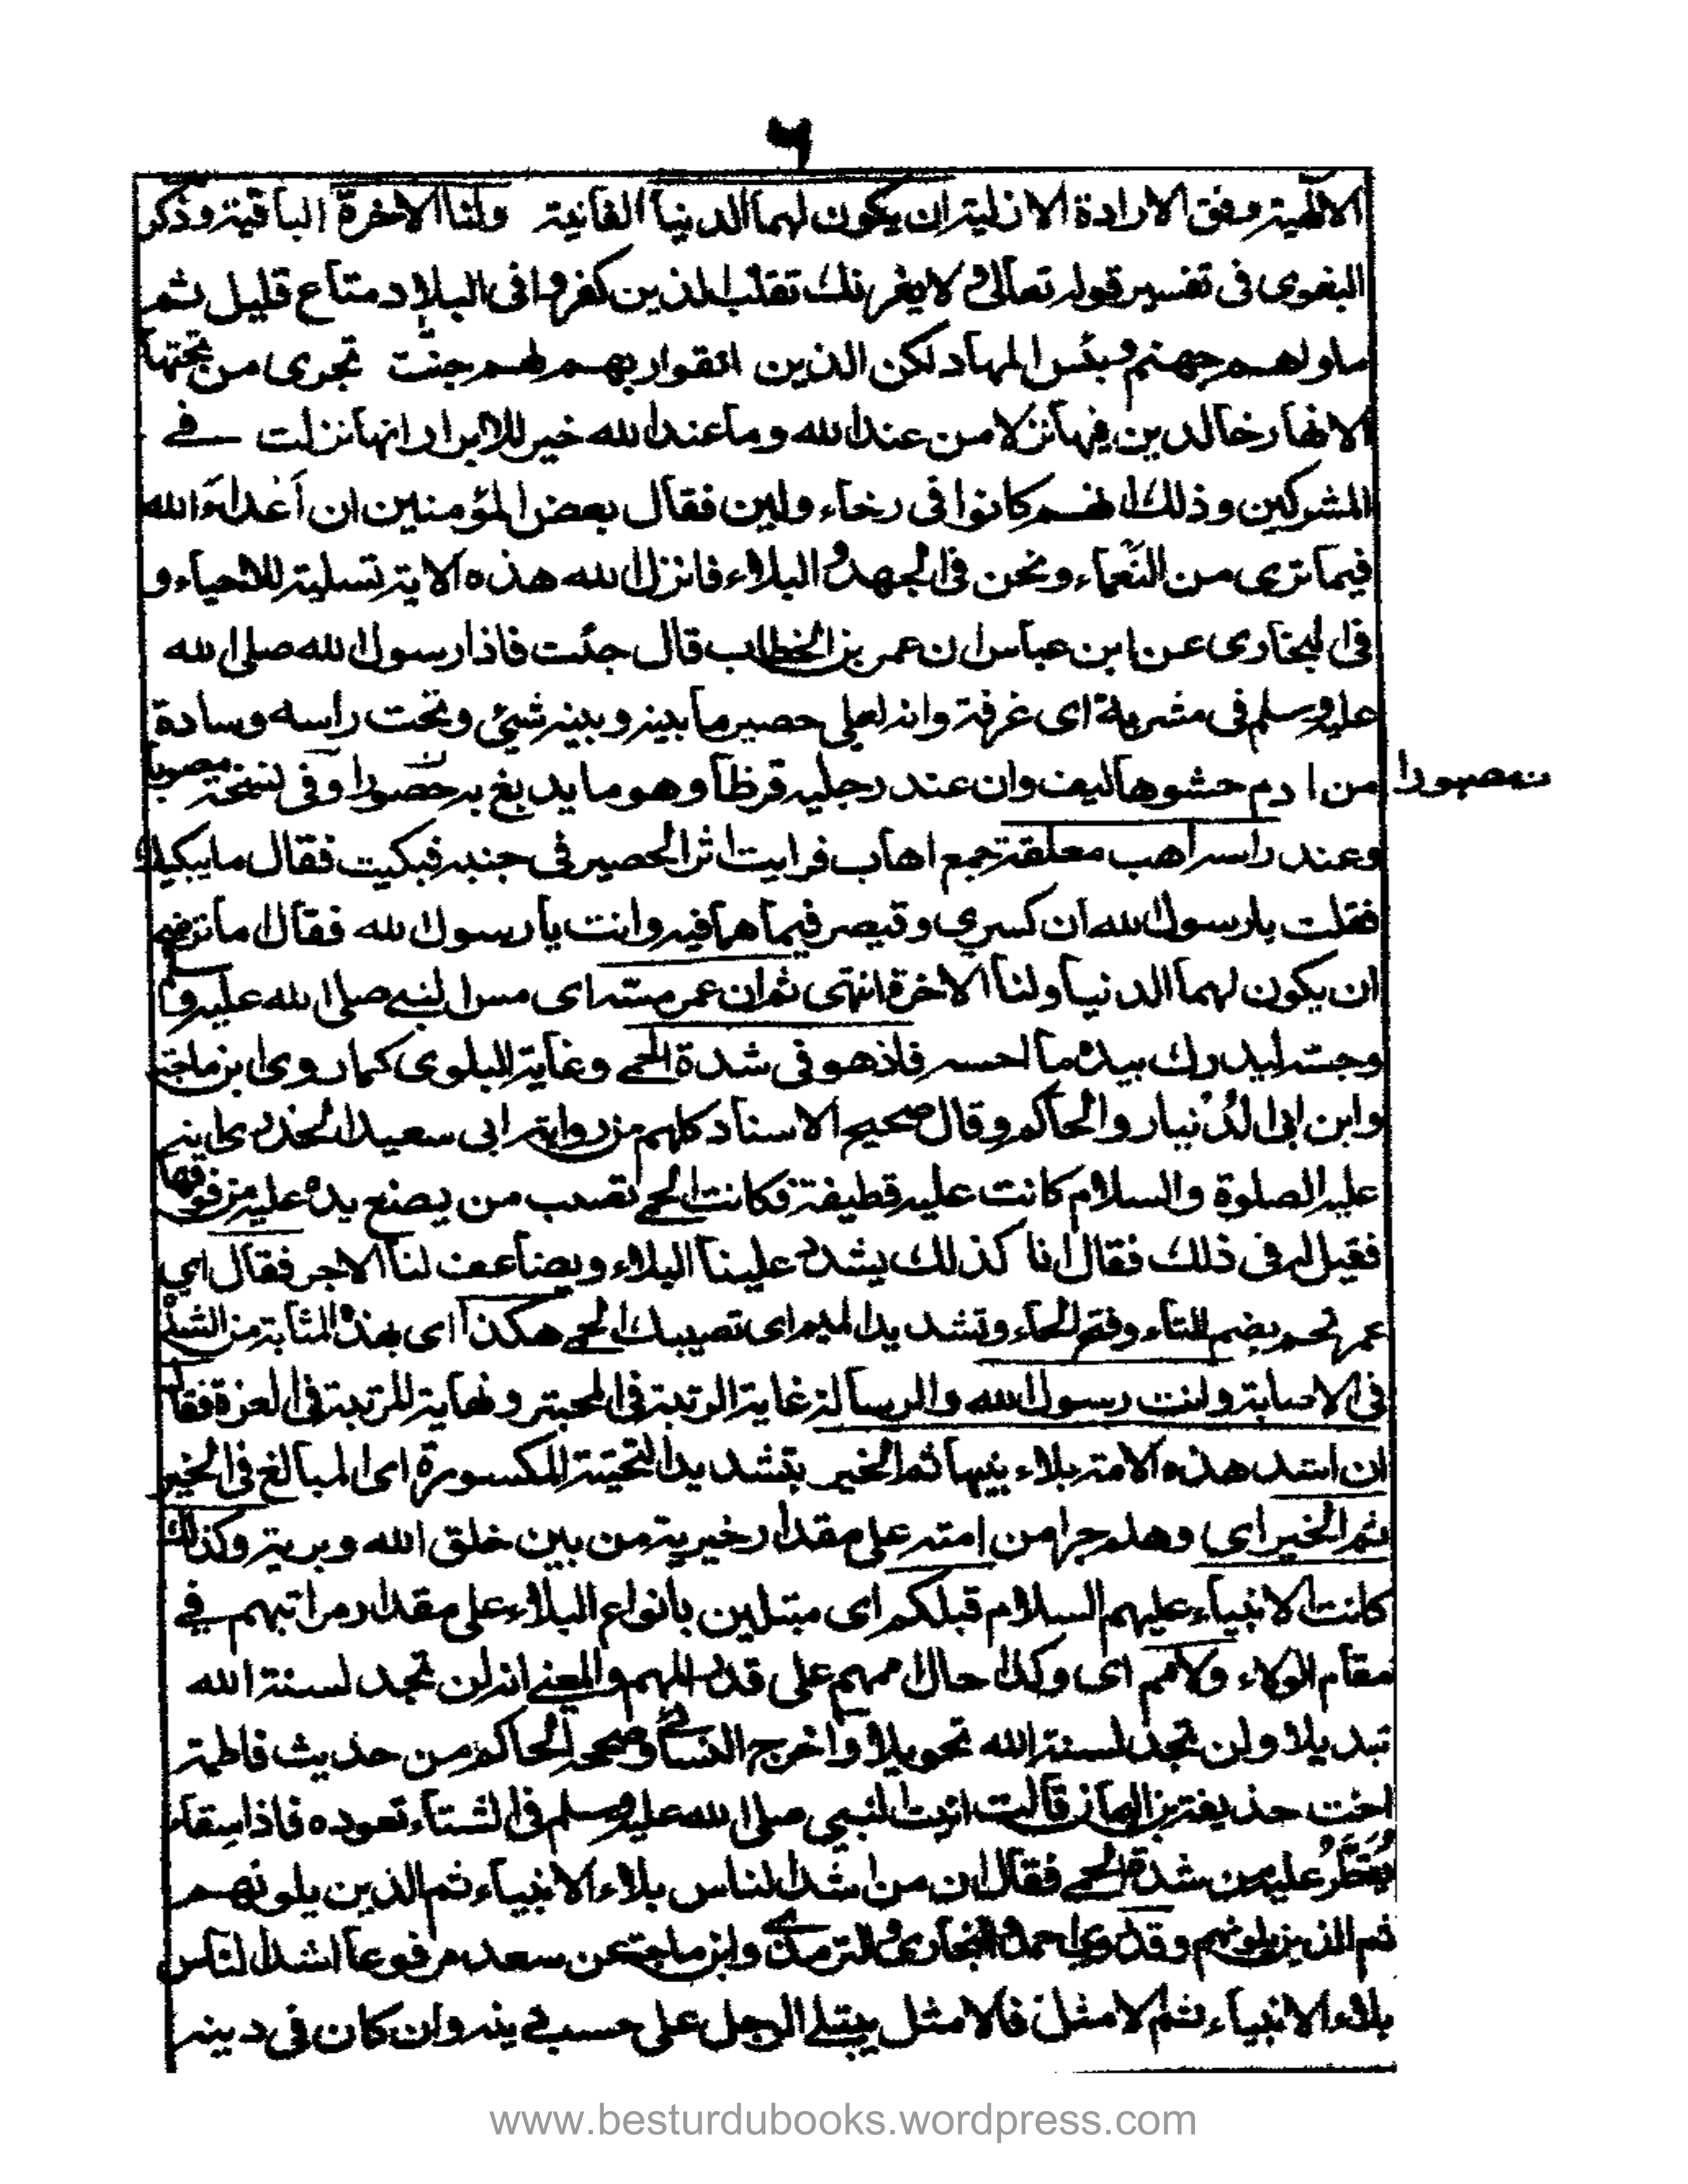 ٦
الالٰهية وفق الارادة الازلية ان يكون لهما الدنيا الفانية ولنا الاخرة الباقية وذكر
البغوى فى تفسير قوله تعالى لا يغرنك تقلب الذين كفروا فى البلاد متاع قليل ثم
ماواهم جهنم وبئس المهاد لكن الذين اتقوا ربهم لهم جنّت تجرى من تحتها
الانهار خالدين فيها نزلا من عند الله وما عند الله خير للابرار انها نزلت فے
المشركين وذلك انهم كانوا فى رخاء ولين فقال بعض المؤمنين ان أعداء الله
فيما نرى من النعماء ونحن فى الجهد والبلاء فانزل الله هذه الاية تسلية للاحياء و
فى البخارى عن ابن عباس ان عمر بن الخطاب قال جئت فاذا رسول الله صلى الله
عليه وسلم فى مشربة اى غرفة وانه لعلى حصير ما بينه وبينه شئ وتحت راسه وسادة
من ادم حشوها ليف وان عند رجليه قرظا وهو ما يدبغ به مصبورا وفى نسخة مصبوبا
ن مصبورا
وعند راسه اهب معلقة جمع اهاب فرايت اثر الحصير فى جنبه فبكيت فقال ما يبكيك
فقلت يا رسول الله ان كسرى وقيصر فيما هما فيه وانت يا رسول الله فقال ما ترضى
ان يكون لهما الدنيا ولنا الاخرة انتهى ثم ان عمر مسّه اى مس النبے صلى الله عليه وسلم
وجسّه ليدرك بيده ما احسه فاذ هو فى شدة الحمے وغاية البلوى كما روى ابن ماجة
وابن ابى الدنيا والحاكم وقال صحيح الاسناد كلهم من رواية ابى سعيد الخدرى انه
عليه الصلوة والسلام كانت عليه قطيفة فكانت الحمے تصيب من يصنع يده عليه من فوقها
فقيل له فى ذلك فقال انا كذلك يشدد علينا البلاء ويضاعف لنا الاجر فقال اى
عمر تحم بضم التاء وفتح الحاء وتشديد الميم اى تصيبك الحمے هكذا اى بهذه المثابة من الشدة
فى الاصابة وانت رسول الله والرسالة غاية الرتبة فى المحبة ونهاية للرتبة فى العزة فقال
ان اشد هذه الامة بلاء نبيها ثم الخير بتشديد التحتية المكسورة اى المبالغ فى الخير
ثم الخير اى وهلم جرا من امته على مقدار خيرية من بين خلق الله وبرية وكذلك
كانت الانبياء عليهم السلام قبلكم اى مبتلين بانواع البلاء على مقدار مراتبهم فے
مقام الولاء والامم اى وكذا حال اممهم على قدر الهمم والمعنے انه لن تجد لسنة الله
تبديلا ولن تجد لسنة الله تحويلا واخرج النسائى وصححه الحاكم من حذيث فاطمة
اخت حذيفة بن اليمان قالت اتيت النبى صلى الله عليه وسلم فى نساء تعوده فاذا سقاء
يُقَطَّرُ عليه من شدة الحمے فقال ان من اشد الناس بلاء الانبياء ثم الذين يلونهم
ثم الذين يلونهم وقد روى احمد والبخارى والترمذى وابن ماجة عن سعد مرفوعا اشد الناس
بلاء الانبياء ثم الامثل فالامثل يبتلے الرجل على حسب دينه وان كان فى دينه
www.besturdubooks.wordpress.com